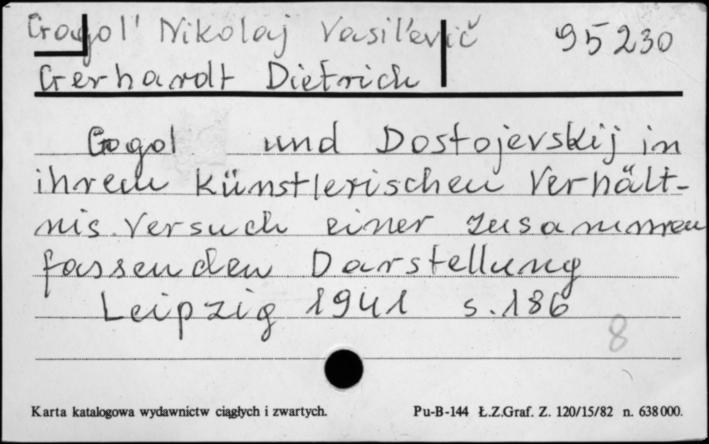 Gogol' Nikolaj Vasil'evič 95230
Gerhardt Dietrich
Gogol und Dostojevskij in
ihrem künstlerischen Verhält-
nis. Versuch einer zusammen
fassenden Darstellung
Leipzig 1941 s.186
8
Karta katalogowa wydawnictw ciągłych i zwartych. Pu-B-144 Ł.Z.Graf. Z. 120/15/82 n. 638000.